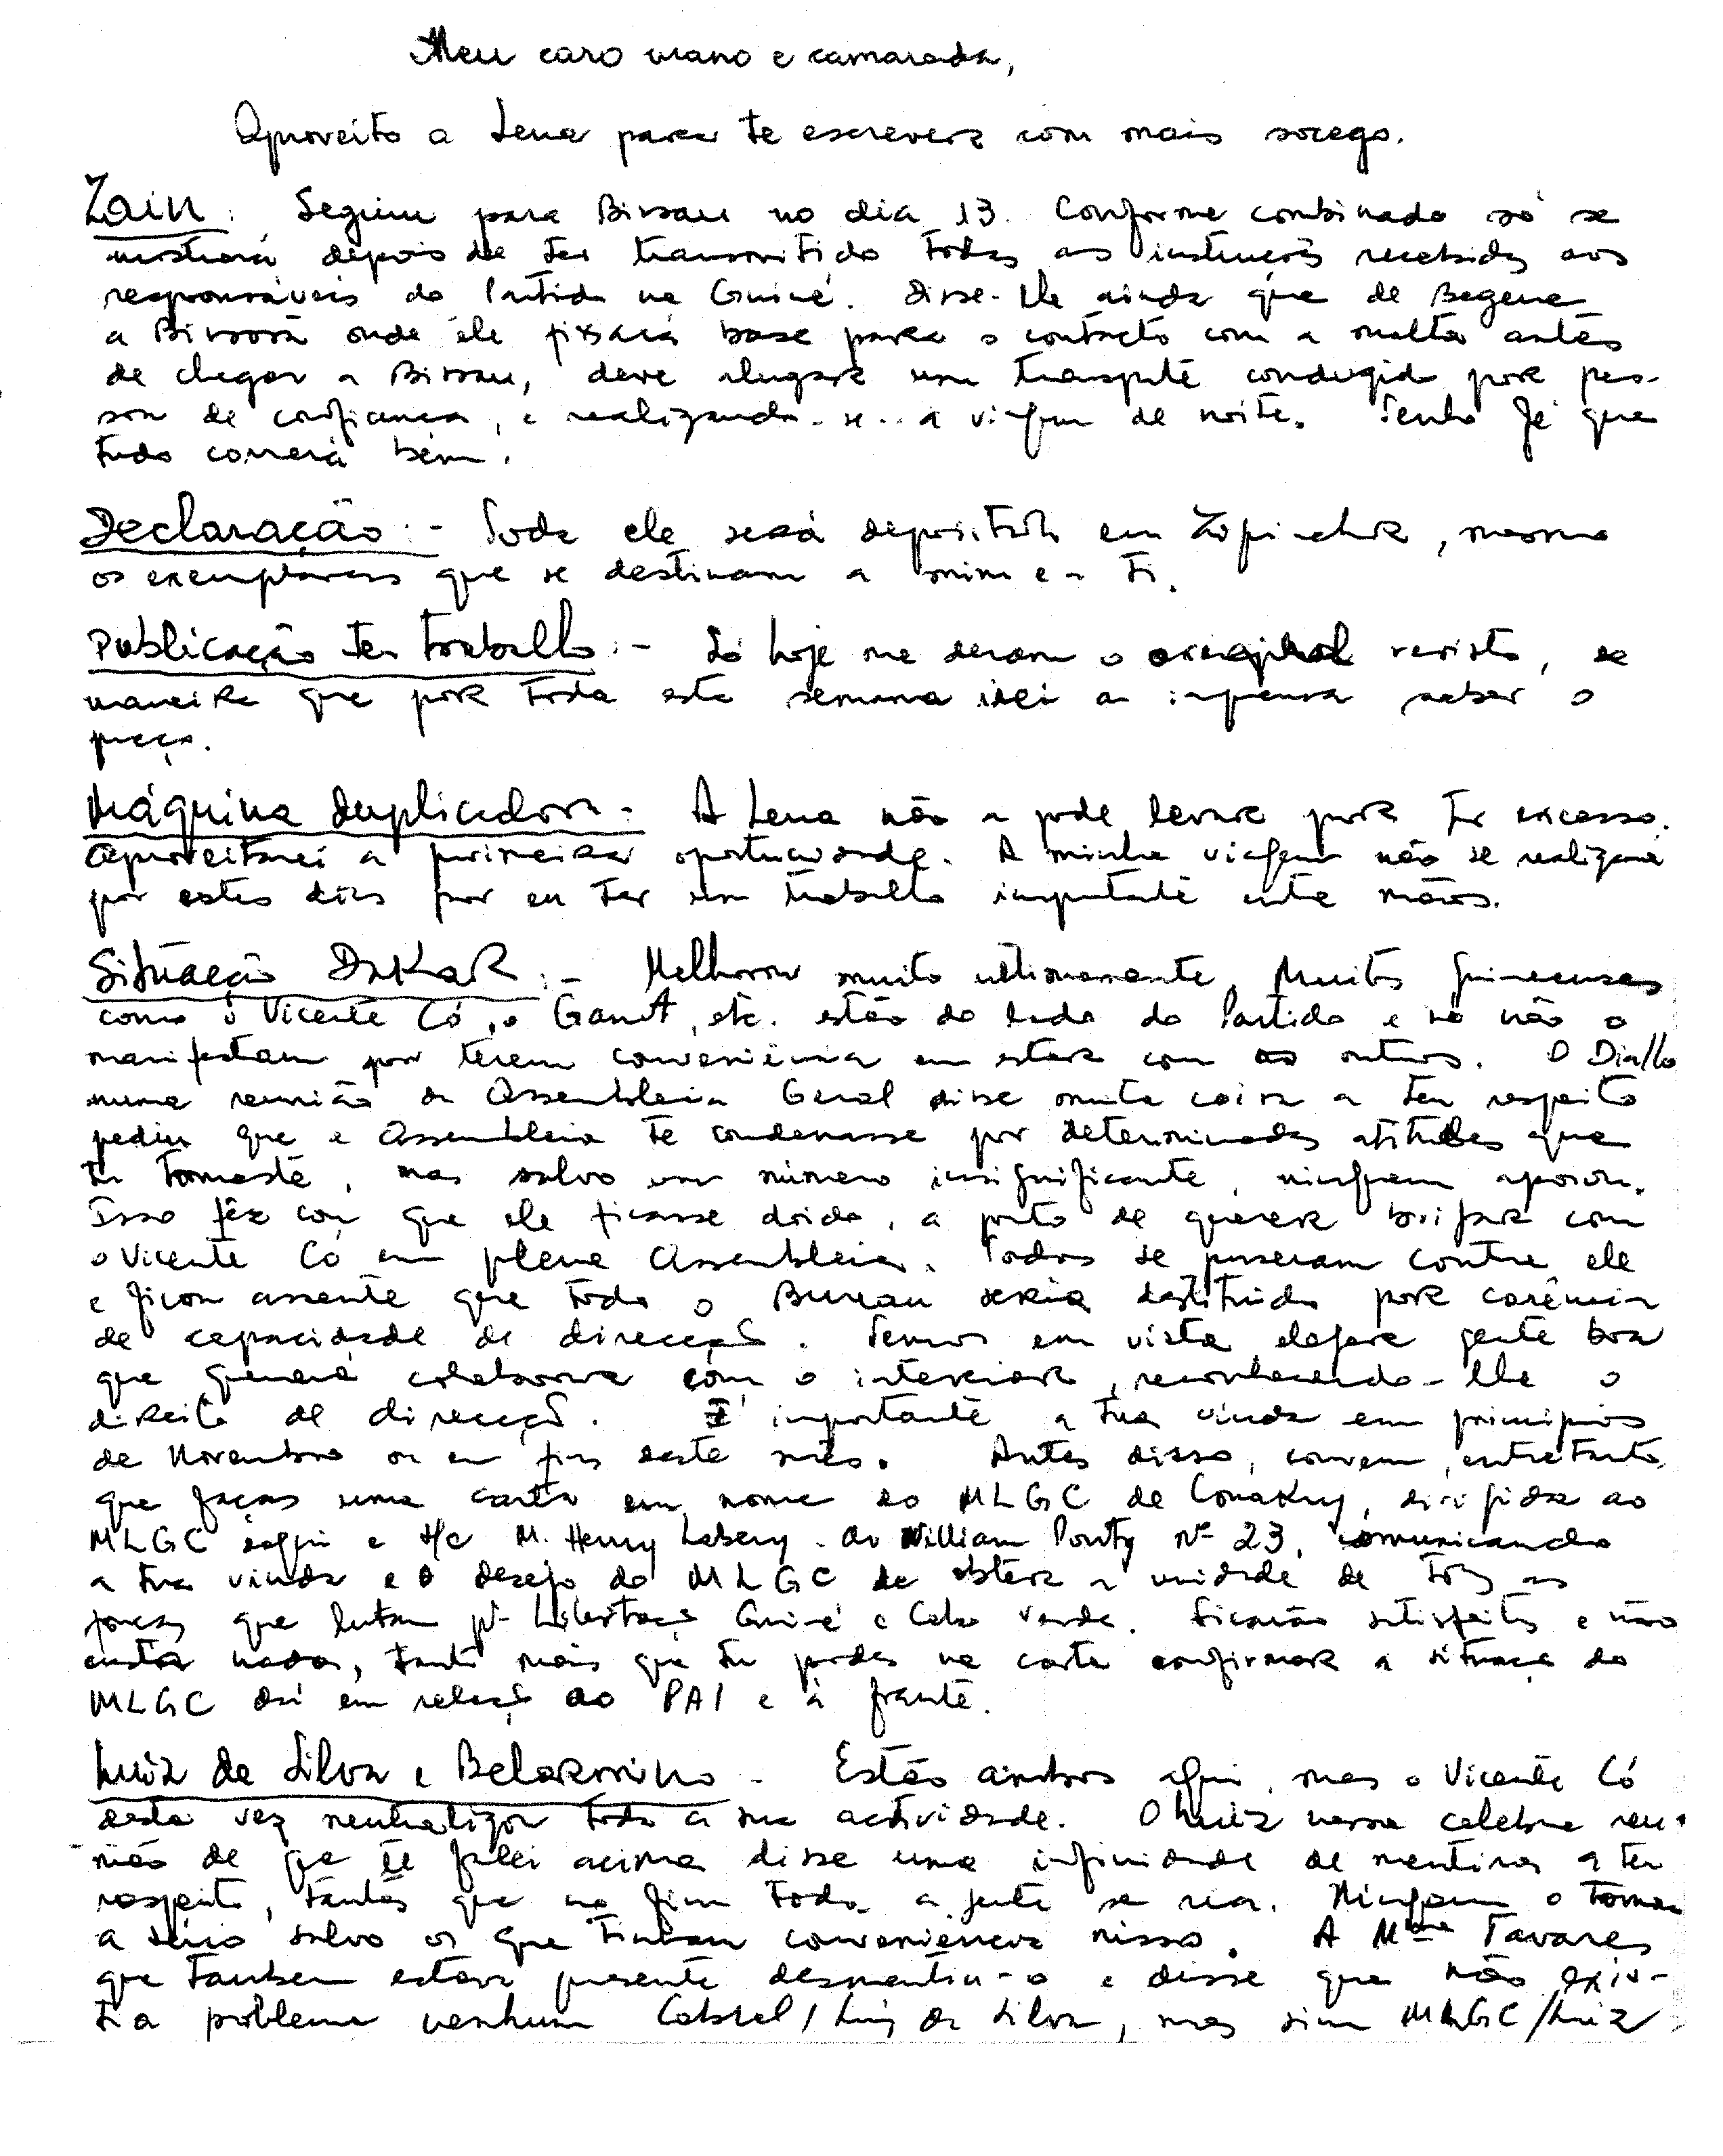 Meu caro mano e camarada,
Aproveito a Lena para te escrever com mais socego.
Zain. Seguiu para Bissau no dia 13. Conforme combinado só se
mostrará depois de ter transmitido todas as instruções recebidas aos
responsáveis do Partido na Guiné. Disse-lhe ainda que de Begene
a Bissorã onde ele fixará base para o contacto com a malta antes
de chegar a Bissau, deve alugar um transporte conduzido por pes-
soa de confiança, e realizando-se a viagem de noite. Tenho fé que
tudo correrá bem.
Declaração:- Toda ela será depositada em Zẽguinchor, mesmo
os exemplares que se destinam a mim e a ti.
Publicação teu trabalho:- Só hoje me deram o original revisto, de
maneira que por toda esta semana irei a imprensa saber o
preço.
Máquina duplicadora- A Lena não a pode levar por ter excesso.
Aproveitarei a primeira oportunidade. A minha viagem não se realizará
por estes dias por eu ter um trabalho importante entre mãos.
Situação DaKaR:- Melhorou muito ultimamente. Muitos guineenses
como o Vicente Có, o etc. estão do lado do Partido e só não o
manifestam por terem conveniência em estar com os outros. O Diallo
numa reunião da Assembleia Geral disse muita coisa a teu respeito
pediu que a Assembleia te condenasse por determinadas atitudes que
tu tomaste, mas salvo um número insignificante, ninguem apoiou.
Isso fêz com que ele ficasse doido, a ponto de querer brigar com
o Vicente Có em plena Assembleia. Todos se puseram contra ele
e ficou assente que todo o Bureau seria destituido por carência
de capacidade de direcção. Temos em vista eleger gente boa
que quererá colaborar com o interior, reconhecendo-lhe o
direito de direcção. É importante a tua vinda em principios
de Novembro ou em fins deste mês. Antes disso, convem, entretanto,
que faças uma carta em nome do MLGC de Conakry, dirigida ao
MLGC daqui e a/c M. Henry Labery - Av William Ponty Nº 23, comunicando
a tua vinda e o desejo do MLGC de obter a unidade de todas as
forças que lutam pª Libertação Guiné e Cabo Verde. Ficarão satisfeitos e não
custa nada, tanto mais que tu podes na carta confirmar a situação do
MLGC daí em relação ao PAI e à frente.
Luiz da Silva e Belarmino - Estão ambos aqui, mas o Vicente Có
desta vez neutralizou toda a sua actividade. O Luiz nessa celebre reu-
nião de que te falei acima disse uma infinidade de mentiras a teu
respeito, tantas que no fim toda a gente se ria. Ninguem o tomou
a sério salvo os que tinham conveniencia nisso. A Mme Tavares
que tambem estava presente desmentiu-o e disse que não exis-
tia problema nenhum Cabral/Luiz da Silva, mas sim MLGC/Luiz